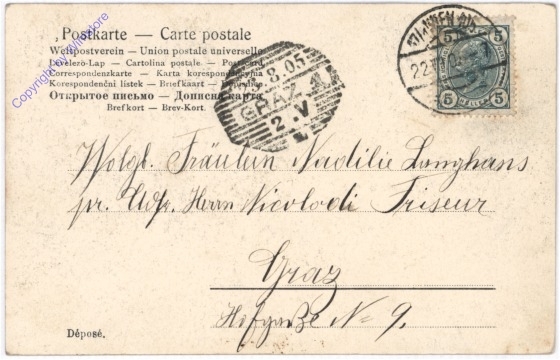 Postkarte — Carte postale
Weltpostverein — Union postale universelle
Levelező-Lap — Cartolina postale — Postcard
Correspondenzkarte — Karta korespondencyjna
Korespondenční lístek — Briefkaart —
Открытое письмо — Дописна карта
Brefkort — Brev-Kort.
8.05
GRAZ 1
2.V
22.
5 5
5 HELLER 5
Wolgb. Fräulein Nadilie Langhans
pr. Adr. Herrn Nicolodi Friseur
Graz
Hofgaße No 9.
Déposé.
Copyright by vindexre